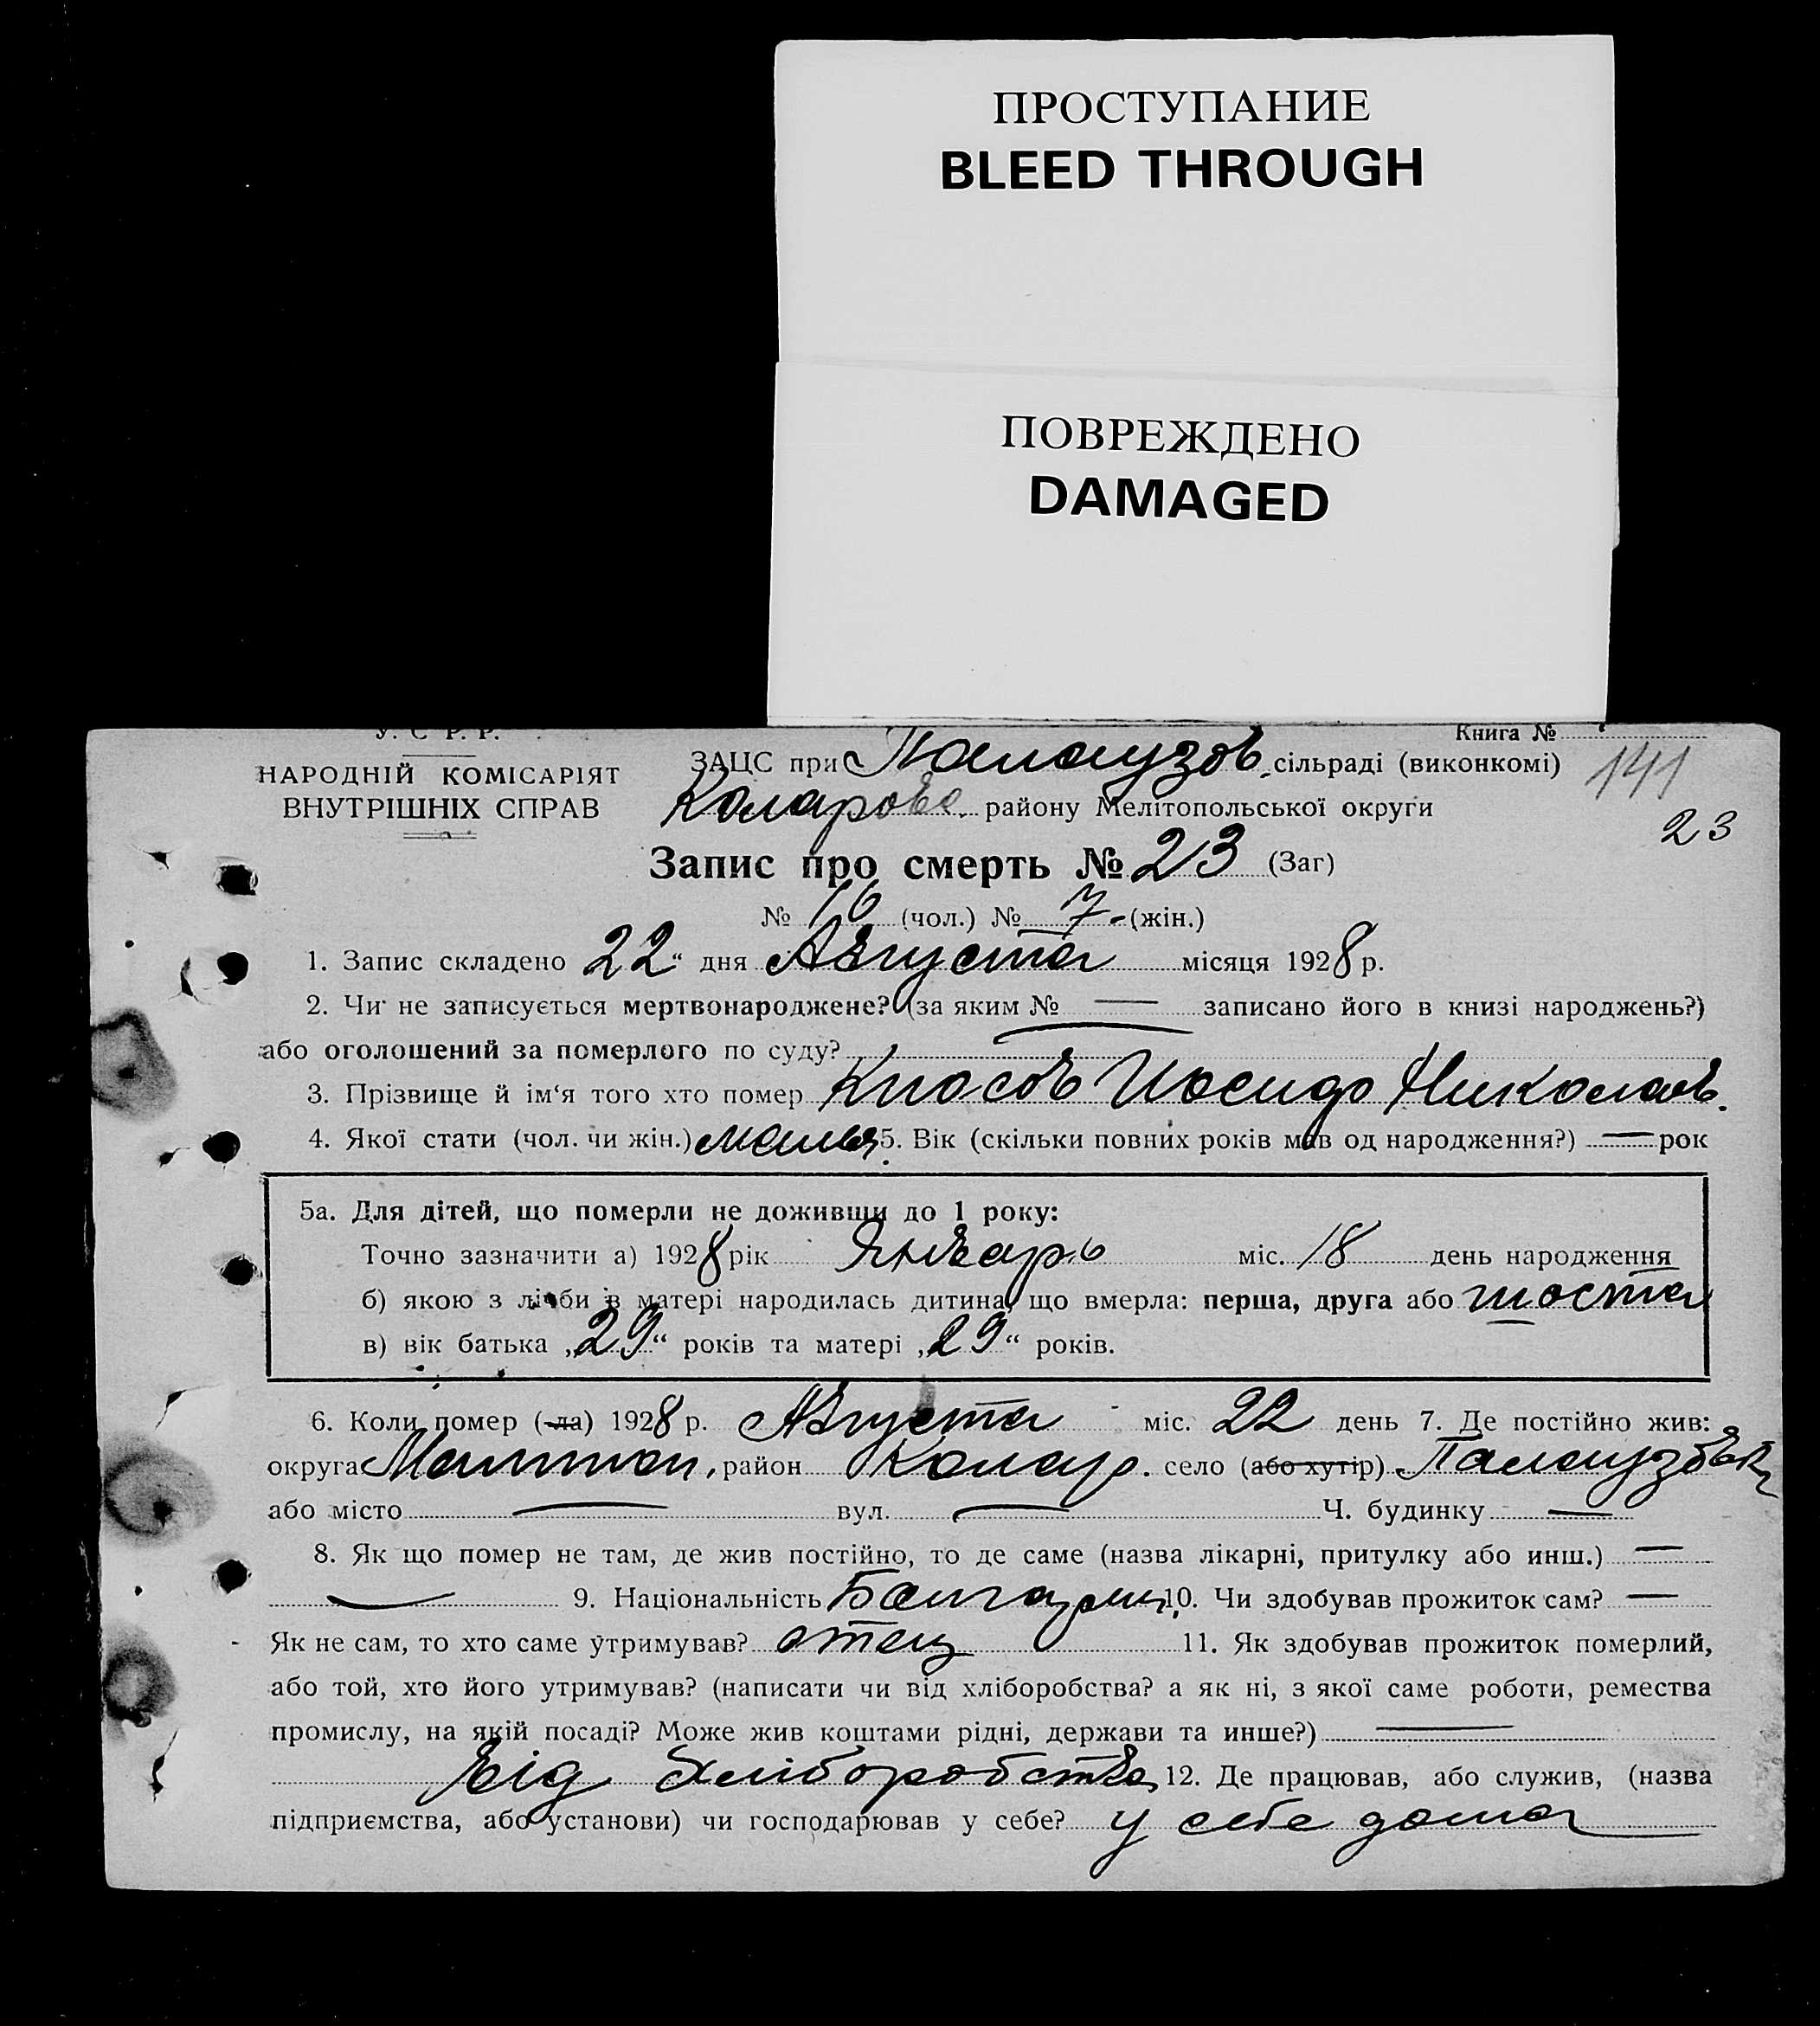 ПРОСТУПАНИЕ
BLEED THROUGH
ПОВРЕЖДЕНО
DAMAGED
У. С. Р. Р.
Книга №
НАРОДНІЙ КОМІСАРІЯТ
ВНУТРІШНІХ СПРАВ
ЗАЦС при Палаузов. сільраді (виконкомі)
141
Коларовс. району Мелітопольської округи
23
Запис про смерть № 23 (Заг)
№ 16 (чол.) № 7 (жін.)
1. Запис складено 22 “ дня Августа місяця 1928 р.
2. Чи не записується мертвонароджене? (за яким № — записано його в книзі народжень?)
або оголошений за померлого по суду? —
3. Прізвище й ім‘я того хто помер Киосов Иосиф Николаев.
4. Якої стати (чол. чи жін.) 5. Вік (скільки повних років мав од народження?) — рок
5а. Для дітей, що померли не доживши до 1 року:
Точно зазначити а) 1928 рік Январь міс. 18 день народження
б) якою з лічби в матері народилась дитина, що вмерла: перша, друга або шоста
в) вік батька „29“ років та матері „29“ років.
6. Коли помер (-ла) 1928 р. Августа міс. 22 день 7. Де постійно жив:
округа район Колар. село (або хутір) Палаузовка
або місто — вул. — Ч. будинку —
8. Як що помер не там, де жив постійно, то де саме (назва лікарні, притулку або инш.) —
— 9. Національність Болгарин 10. Чи здобував прожиток сам? —
Як не сам, то хто саме утримував? отец 11. Як здобував прожиток померлий,
або той, хто його утримував? (написати чи від хліборобства? а як ні, з якої саме роботи, ремества
промислу, на якій посаді? Може жив коштами рідні, держави та инше?) —
від хліборобства 12. Де працював, або служив, (назва
підприємства, або установи) чи господарював у себе? у себе дома